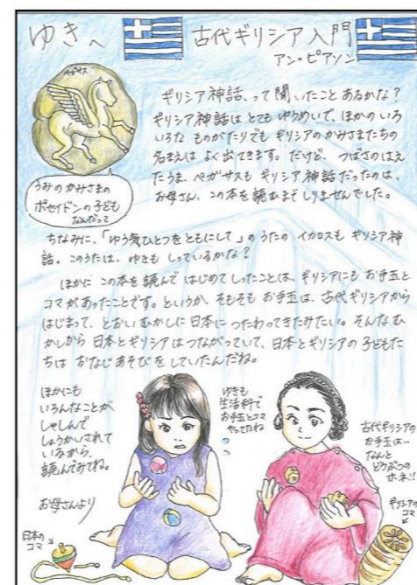 ゆきへ
古代ギリシア入門
アン・ピアソン
ペガサス
うみのかみさまの
ポセイドンの子ども
なんだって
ギリシア神話、って聞いたことあるかな?
ギリシア神話はとてもゆうめいで、ほかのいろ
いろなものがたりでもギリシアのかみさまたちの
名まえはよく出てきます。だけど、つばさのはえ
たうま、ペガサスもギリシア神話だったのは、
お母さん、この本を読むまでしりませんでした。
ちなみに、「ゆう気ひとつをともにして」のうたのイカロスもギリシア神
話。このうたは、ゆきもしっているかな?
ほかにこの本を読んではじめてしったことは、ギリシアにもお手玉と
コマがあったことです。というか、そもそもお手玉は、古代ギリシアから
はじまって、とおいむかしに日本につたわってきたみたい。そんなむ
かしから日本とギリシアはつながっていて、日本とギリシアの子どもた
ちはおなじあそびをしていたんだね。
ほかにも
いろんなことが
しゃしんで
しょうかいされて
いるから、
読んでみてね。
お母さんより
ゆきも
生活科で
お手玉とコマ
やってたね
古代ギリシアの
お手玉は…
なんと
どうぶつの
ホネ!!
日本の
コマ
ギリシアの
コマ